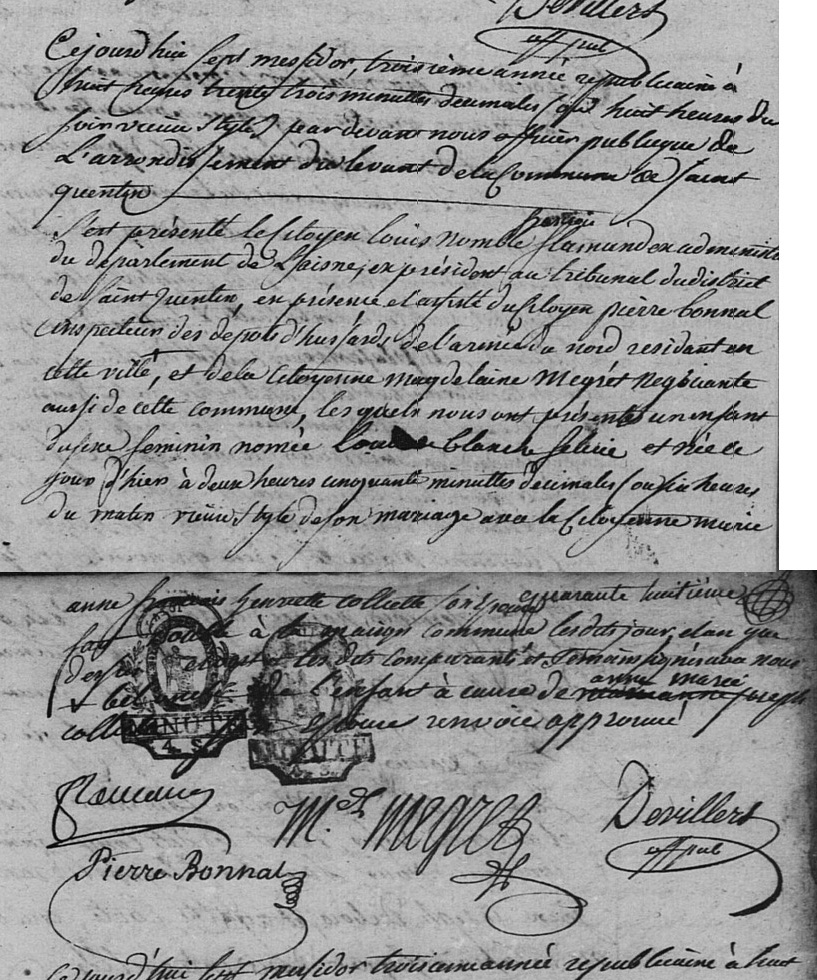 Devillers
off pub
Cejourd'hui sept messidor, troisième année republicaine à
huit heures trente trois minuttes decimales (ou huit heures du
soir vieux style) pardevant nous officier publique de
L'arrondissement du levant de la Commune de Saint
quentin
S'est présenté le Citoyen Louis Flamand ex administ
du département de L'aisne, ex président au tribunal du district
de Saint Quentin, en présence et assisté du Citoyen pierre bonnal
inspecteur des depots d'hussards de l'armée du nord residant en
cette ville, et de la Citoyenne magdelaine Megret Negociante
aussi de cette commune, lesquels nous ont présentés un enfant
du sexe feminin nomée blanche felicie et née ce
jour d'hier à deux heures cinquante minuttes decimales (ou six heures
du matin vieux Style de son mariage avec la Citoyenne marie
anne henriette colliette son epouse quarante huitième
fait à la maison commune lesdits jour et an que
dessus et ont lesdits comparants et temoins signés avec nous
de l'enfant à cause de anne marie joseph
epouse renvoi approuvé
MINUTE
4. S.
MINUTE
Flamand
M.d Megret
Devillers
off pub
Pierre Bonnal
Cejourd'hui sept messidor troisieme année republicaine à huit